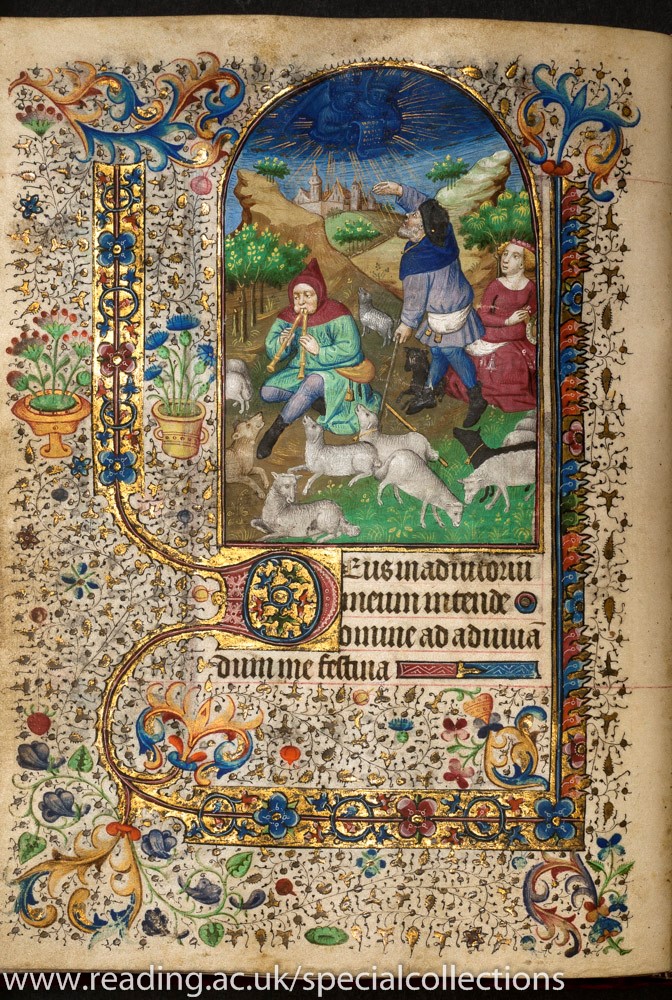 Deus in adiutoriu
meum intende
domine ad adiuuā
dum me festina
www.reading.ac.uk/specialcollections